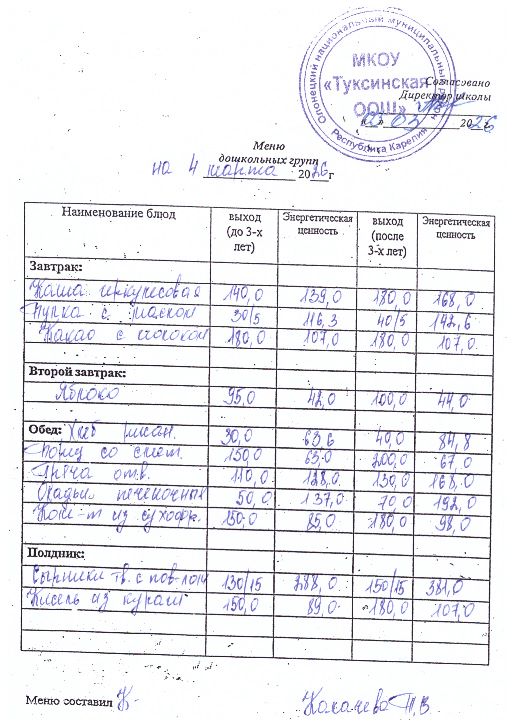 Олонецкий национальный муниципальный район
Республика Карелия
МКОУ
«Туксинская
ООШ»
Согласовано
Директор школы
« 03 » 03 2026
Меню
дошкольных групп
на 4 марта 2026г
Наименование блюд выход (до 3-х лет) Энергетическая ценность выход (после 3-х лет) Энергетическая ценность
Завтрак:
Каша геркулесовая 140,0 139,0 180,0 168,0
Булка с маслом 30/5 116,3 40/5 142,6
Какао с молоком 180,0 107,0 180,0 107,0
Второй завтрак:
Яблоко 95,0 42,0 100,0 44,0
Обед: Хлеб ржан. 30,0 63,6 40,0 84,8
Борщ со смет. 150,0 63,0 200,0 67,0
Греча отв. 110,0 128,0 130,0 168,0
Оладьи печеночные 50,0 137,0 70,0 192,0
Ком-т из сухофр. 150,0 85,0 180,0 98,0
Полдник:
Сырники тв. с пов-лом 130/15 288,0 150/15 381,0
Кисель из кураги 150,0 89,0 180,0 107,0
Меню составил